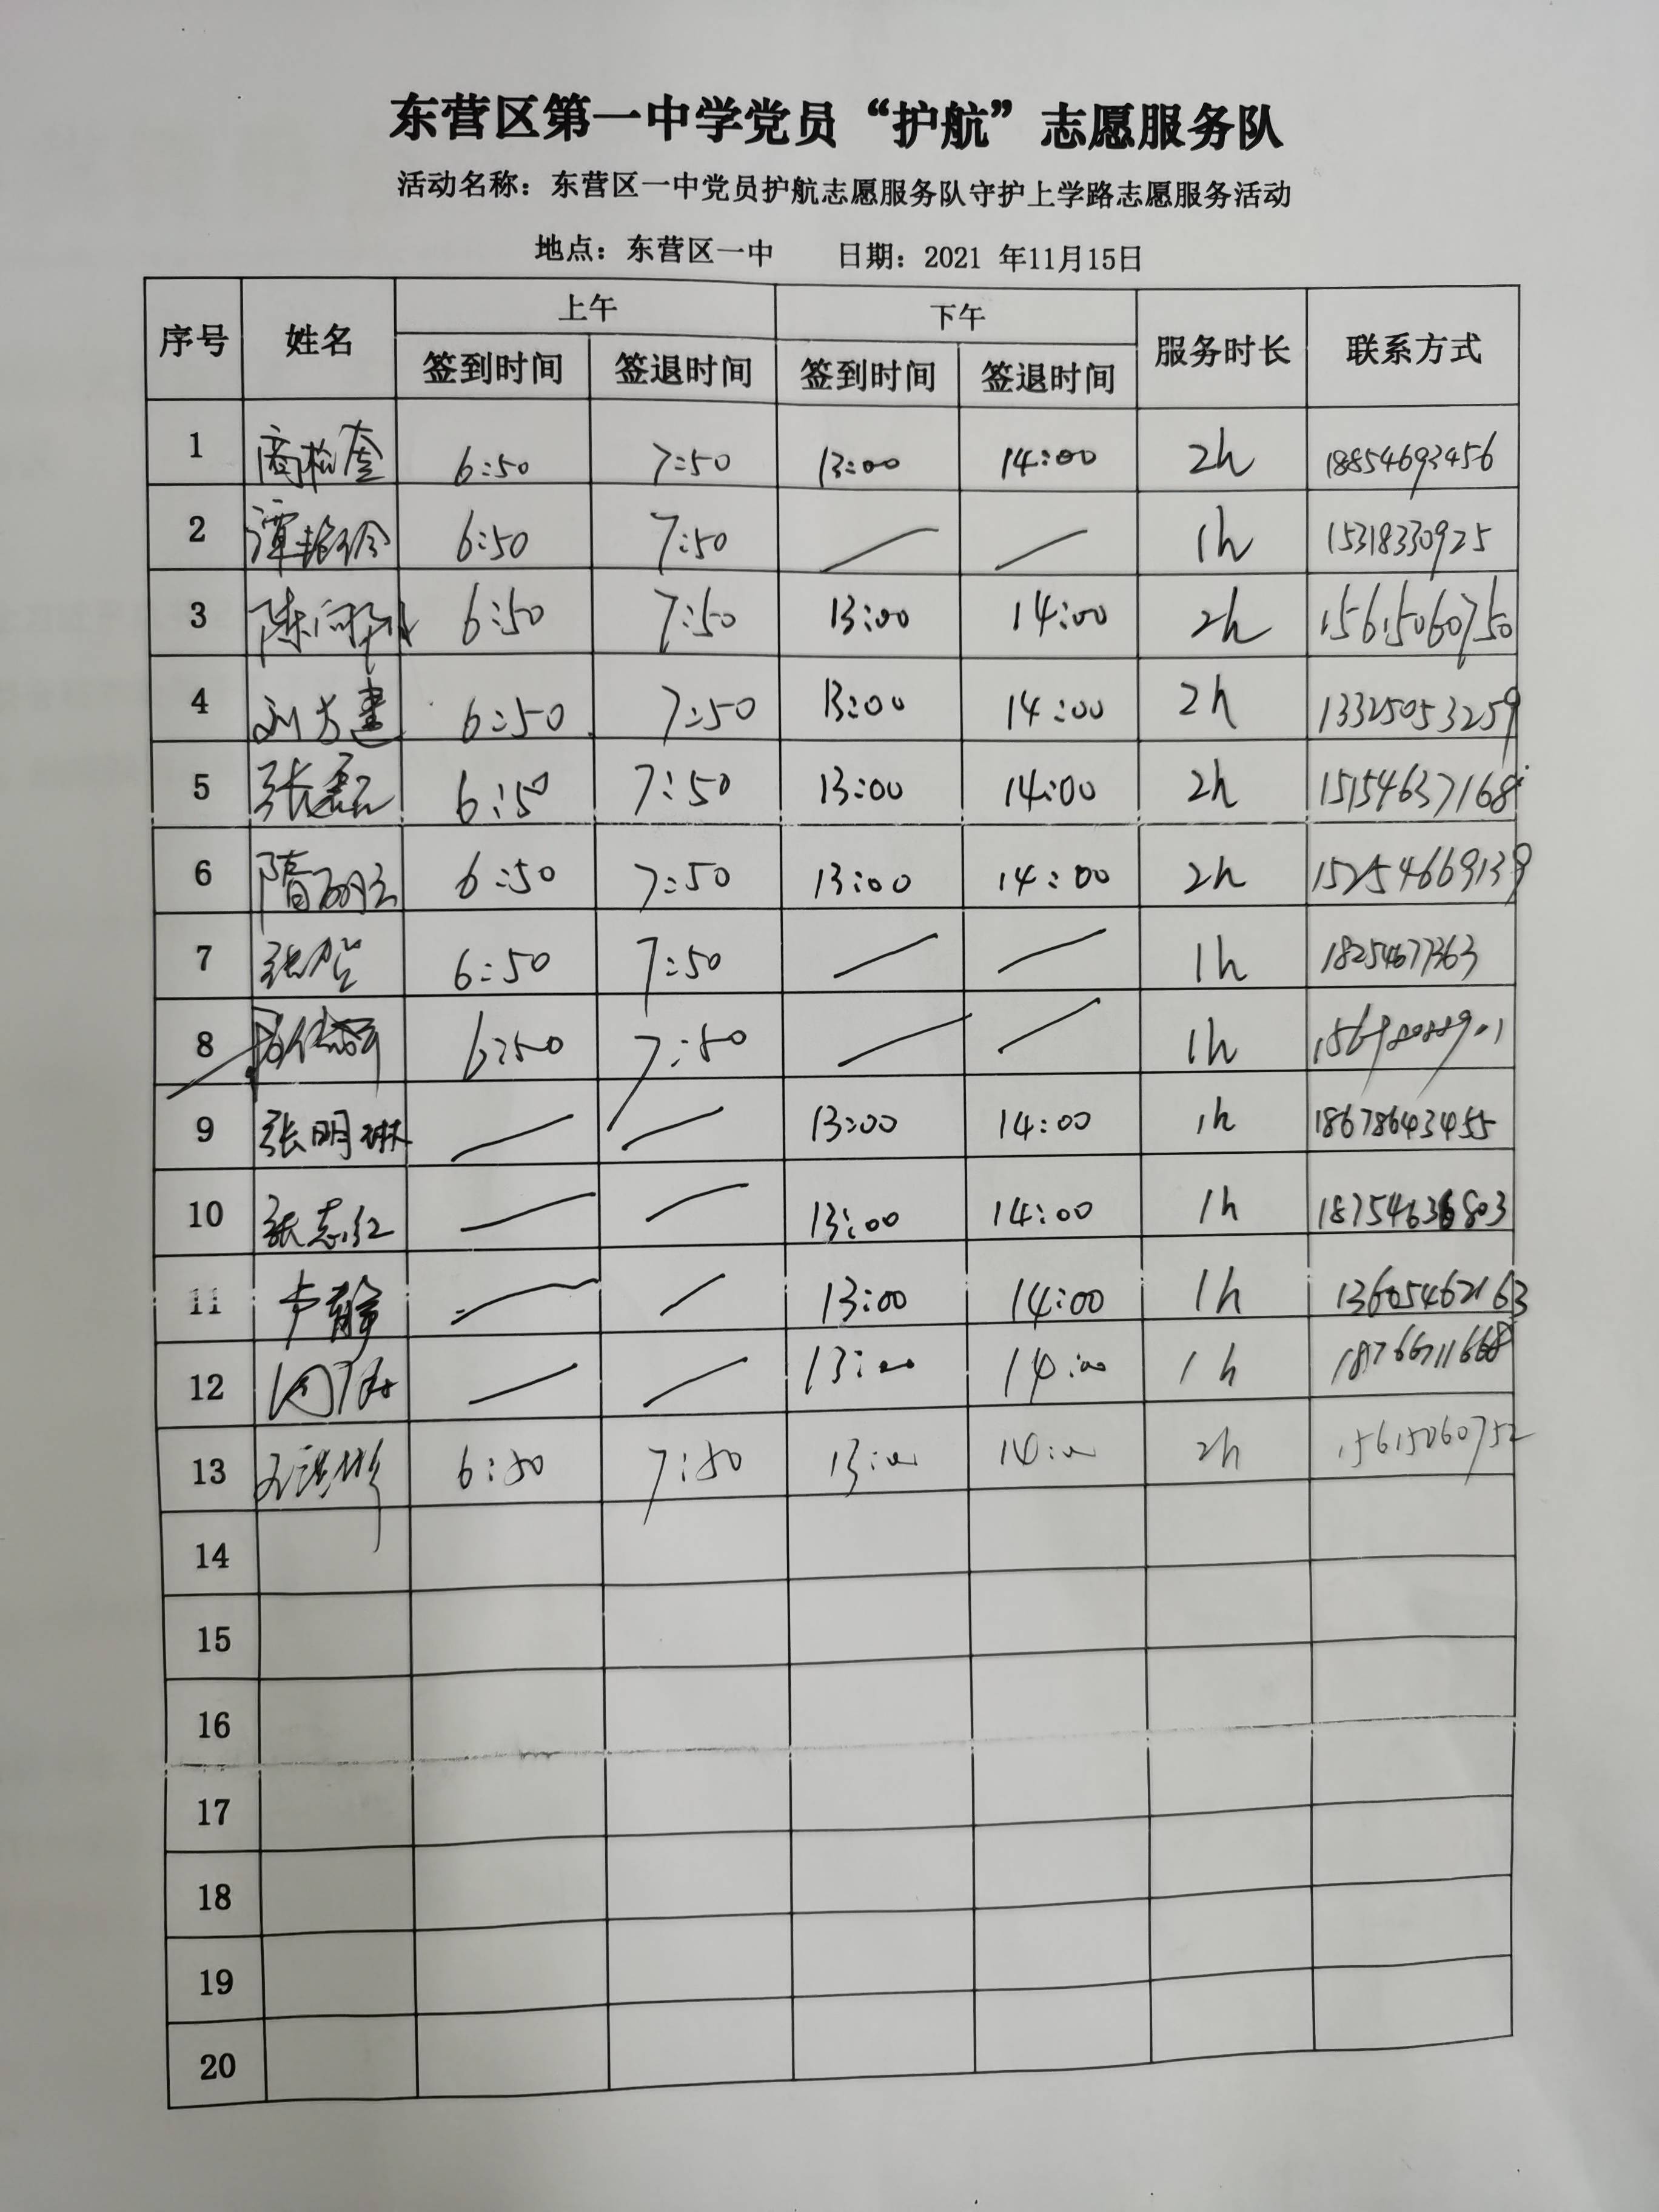 东营区第一中学党员“护航”志愿服务队
活动名称：东营区一中党员护航志愿服务队守护上学路志愿服务活动
地点：东营区一中 日期：2021 年11月15日
序号 姓名 上午 下午 服务时长 联系方式
签到时间 签退时间 签到时间 签退时间
1 商松奎 6:50 7:50 13:00 14:00 2h 18854693456
2 6:50 7:50 1h 15318330925
3 6:50 7:50 13:00 14:00 2h 15615060750
4 刘方建 6:50 7:50 13:00 14:00 2h 13325053259
5 张磊 6:50 7:50 13:00 14:00 2h 15154637168
6 6:50 7:50 13:00 14:00 2h 15254669139
7 张莹 6:50 7:50 1h 18254677363
8 6:50 7:50 1h
9 张明琳 13:00 14:00 1h 18678643455
10 张志红 13:00 14:00 1h
11 卢静 13:00 14:00 1h 13605462163
12 13:00 14:00 1h 18766711668
13 6:50 7:50 13:00 14:00 2h 15615060752
14
15
16
17
18
19
20